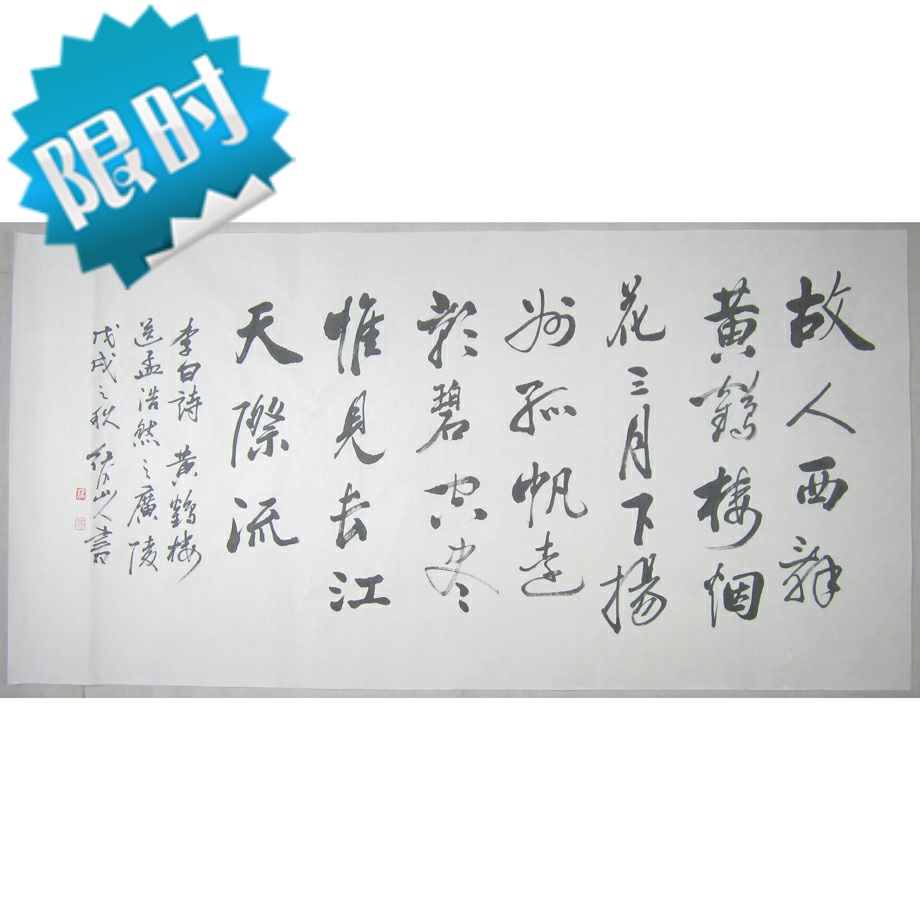 限时
故人西辞
黄鹤楼烟
花三月下揚
州孤帆遠
影碧空尽
惟見長江
天際流
李白詩 黄鹤楼
送孟浩然之廣陵
戊戌之秋 山人書